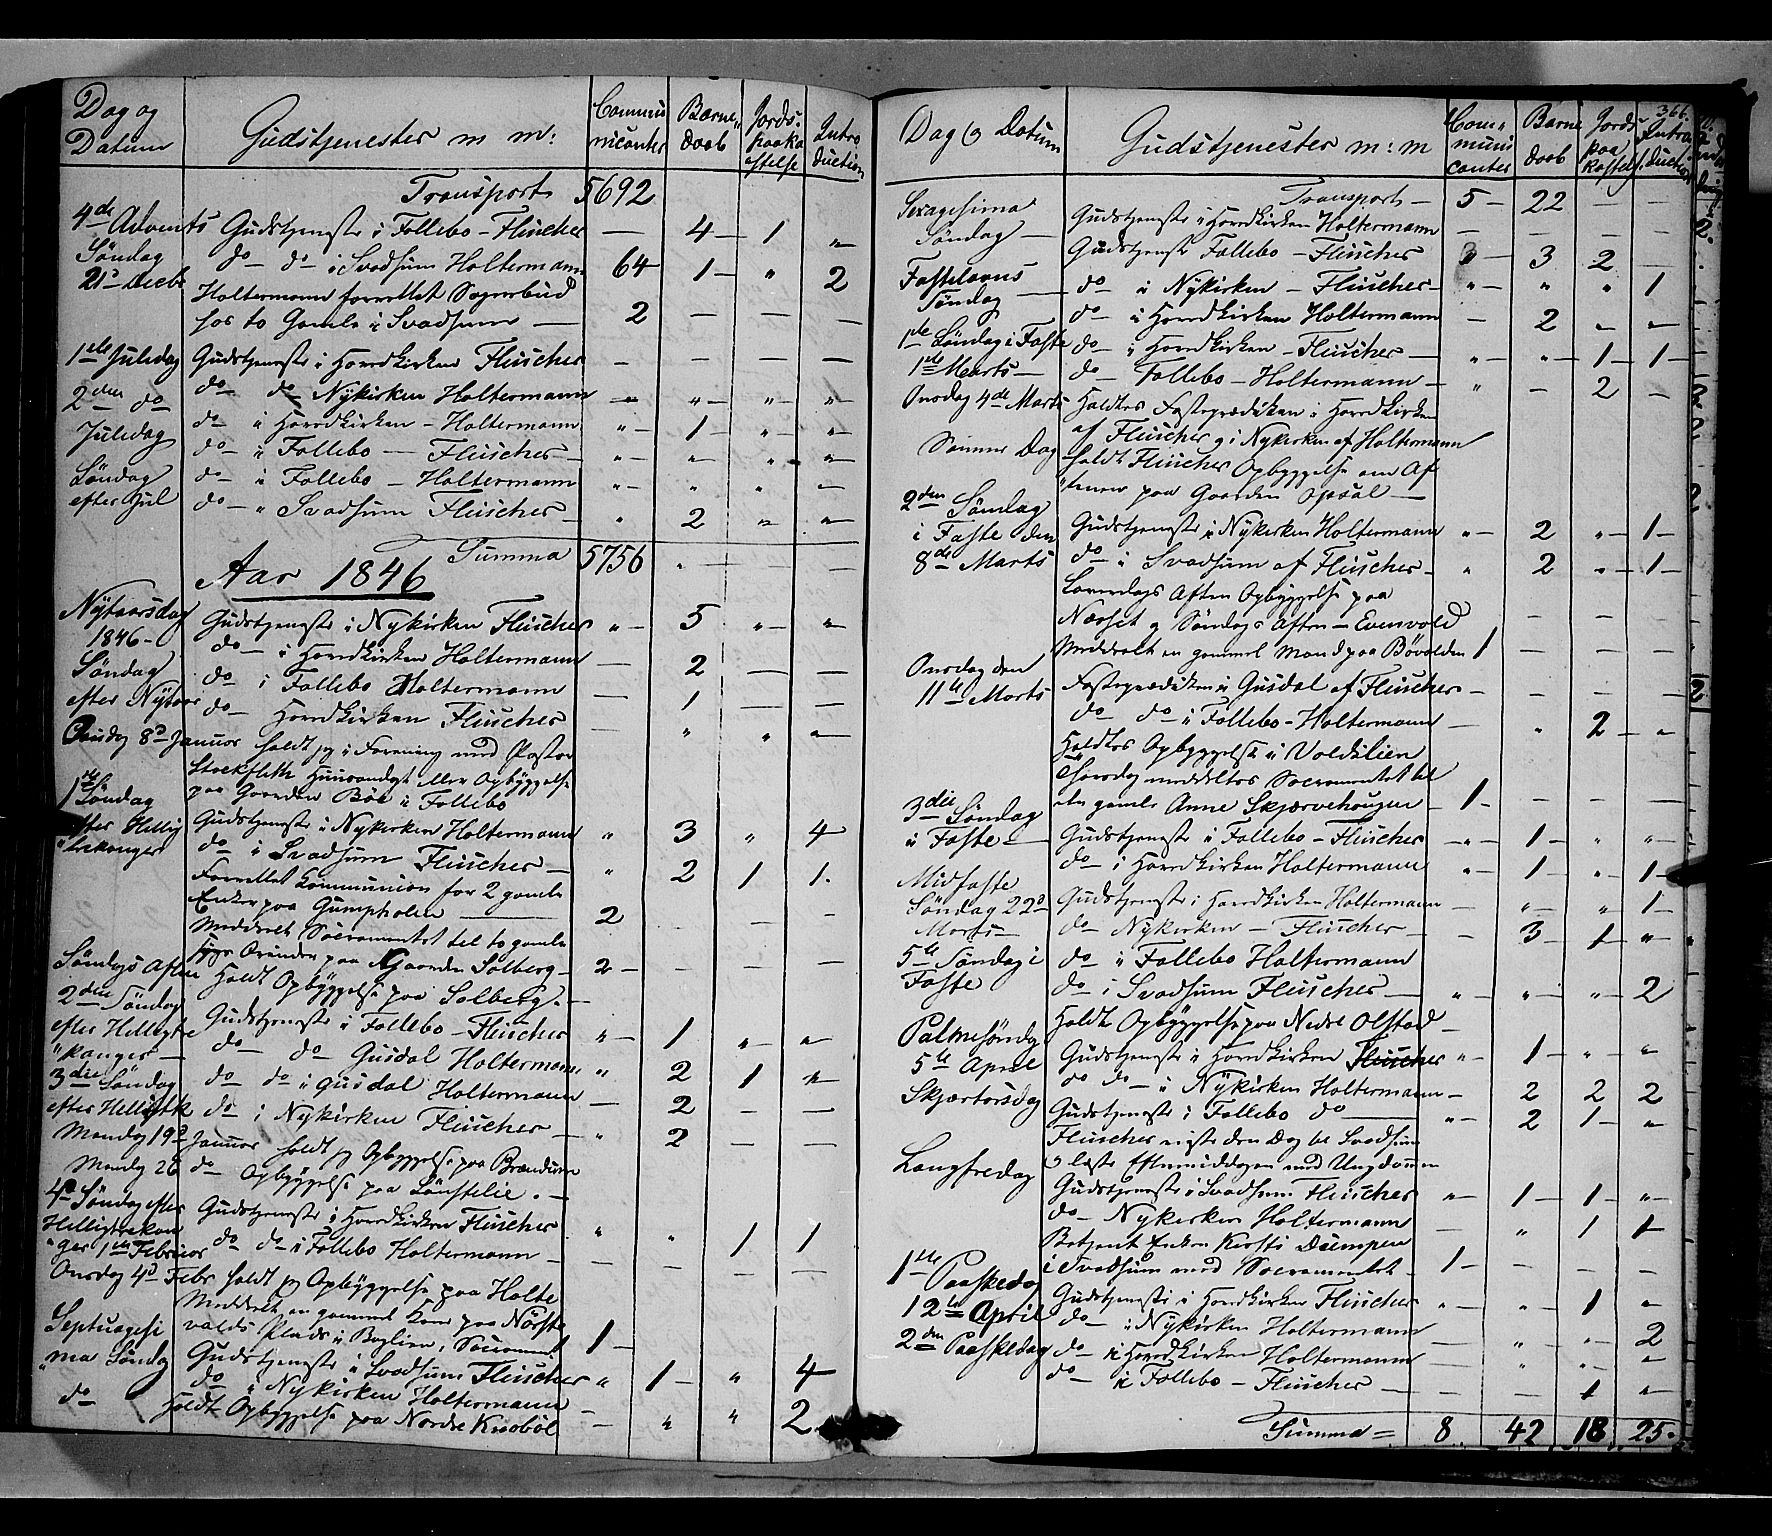 Dag og Datum | Gudstjenester m m: | Communicanter | Barnedaab | Jords-paakastelse | Introduction
Transport 5692
4de Advents Gudstjeneste i Follebo - Fleischer — 4 — 1 "
Søndag do — do — i Svadsum Holtermann 64 1 — " 2
21d Decbr Holtermann forrettet Sognebud
hos to Gamle i Svadsum — 2 — — —
1ste Juledag Gudstjeneste i Hovedkirken Fleischer — — — —
do — do Nykirken Holtermann — " — " — "
2den do do — i Hovedkirken - Holtermann " — 1 — " — "
Juledag do — i Follebo — Fleischer — " — " — " — "
Søndag do — i Follebo — Holtermann " — " — " "
efter Jul do — " Svadsum Fleischer — " 2 " — "
Summa 5756 " — — —
Aar 1846
Nytaarsdag Gudstjeneste i Nykirken Fleischer " — 5 " — "
1846 — do — i Hovedkirken Holtermann — 2 — —
Søndag do i Follebo Holtermann — 1 — —
efter Nytaar do — Hovedkirken Fleischer — " " — "
Onsdag 8d Januar holdt jeg i Forening med Pastor
Stockfleth Huusandagt eller Opbyggelse
paa Gaarden Böe i Follebo
1ste Søndag Gudstjeneste i Nykirken Holtermann " 3 " 4
efter Hellig do — i Svadsum Fleischer — " 2 1 1.
"trekonger Forrettet Communion for 2 gamle
Enker paa Gumpholen — 2 — — —
Meddeelt Sacramentet til to gamle
syge Qvinder paa Gaarden Solberg — 2 — — — —
Søndags Aften Holdt Opbyggelse paa Solberg. —
2den Søndag Gudstjeneste i Follebo — Fleischer " — 1 " — "
efter Helligtre do — do Gusdal Holtermann " 2 1 "
"konger —
3die Søndag do do i Gusdal Holtermann — 2 — —
efter Helligtk do — i Nykirken Fleischer — " 2 — —
Mandag 19d Januar holdt jeg Opbyggelse paa Brændum
Mandg 26 do — Opbyggelse paa Lönstelie. —
4de Søndag efter Gudstjeneste i Hovedkirken Fleischer " " 1 1
Helligtrekon
"ger 1ste Februar do do i Follebo Holtermann — — — — —
Onsdag 4d Febr holdt jg Opbyggelse paa Holte
Meddeelt en gammel Kone paa Nörste
volds Plads i Baglien, Sacrament 1 —
Septuagesi Gudstjeneste i Svadsum Fleischer " 1 — " 4
"ma Søndg do " Nykirken Holtermann — " " 2
do — Holdt Opbyggelse paa Nordre Knoböl
366.
Dag & Datum | Gudstjenester m: m | Communicanter | Barnedaab | Jordspaakastelse | Introduction
Transport — 5 — 22 — —
Sexagesima Gudstjeneste i Hovedkirken Holtermann — — — —
Søndag — Gudstjeneste Follebo — Fleischer — 3 2 —
Fastelavns do — i Nykirken — Fleischer — " — " " 1
Søndag — do — i Hovedkirken Holtermann — 2 " — "
1ste Søndag i Faste do — i Hovedkirken — Fleischer — " — " — 1 — 1 —
1ste Marts — do — Follebo — Holtermann — " — 2 —
Onsdag 4de Marts Holdtes Fasteprædiken i Hovedkirken
af Fleischer og i Nykirken af Holtermann
Samme Dag holdt Fleischer Opbyggelse om Af
"tenen paa Gaarden Opsal —
2den Søndag
i Faste den Gudstjeneste i Nykirken Holtermann " — 2 " — 1 —
8de Marts do — i Svadsum af Fleischer — " 2 " — 1 —
Løverdags Aften Opbyggelse paa
Nærset og Søndags Aften — Evenvold — — —
Meddeelt en gammel Mand paa Bövolden 1 — — —
Onsdag den
11te Marts Fasteprædiken i Gusdal af Fleischer — — — — —
do — do — i Follebo — Holtermann — " 2 — "
Holdtes Opbyggelse i Voldslien
Thorsdag meddeltes Sacramentet til
den gamle Anne Skjærvehougen — 1 — — — —
3die Søndag
i Faste — Gudstjeneste i Follebo — Fleischer — " — 1 — " "
do — i Hovedkirken Holtermann " — 1 — " 1 —
Midfaste
Søndag 22d Gudstjeneste i Hovedkirken Holtermann — " — " 1 —
Marts — do — Nykirken — Fleischer — — 3 — 1 — "
5te Søndag i do — i Follebo Holtermann
Faste do — i Svadsum Fleischer — " — " — " — 2
Holdt Opbyggelse paa Nedre Olstad —
Palmesøndg
5te April Gudstjeneste i Hovedkirken Fleischer " — 1 — " — "
do do — i Nykirken Holtermann — 2 2 2
Skjærtorsdag Gudstjeneste i Follebo do — " — 2 1 — "
Fleischer reiste den Dag til Svadsum
& læste Eftermiddagen med Ungdommen
Langfredag Gudstjeneste i Svadsum Fleischer " — 1 — 1 — "
do — Nykirken Holtermann — " 1 1
Betjent Enken Kirsti Dumpen
i Svadsum med Sacramentet — 1 — — — —
1ste Paaskedag Gudstjeneste i Hovedkirken Fleischer " — " — 1 — "
12te April do — i Nykirken Holtermann — " " — 2
2den Paaskedag do — i Hovedkirken Holtermann — " — " — "
do — i Follebo — Fleischer — — — 1 — "
Summa = 8 42 18 25.